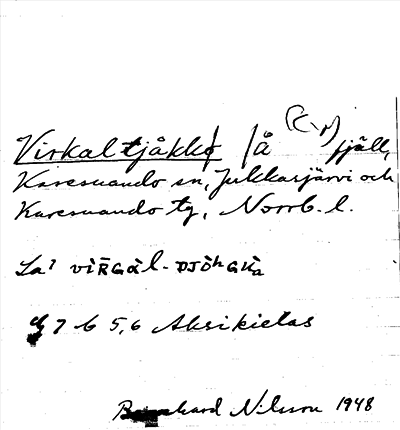 Virkaltjåkko /å (C-n) fjäll,
Karesuando sn, Jukkasjärvi och
Karesuando tg, Norrb. l.
La? viRGal-DJÖhGKa
7 b 5,6 Aksikietas
Bernhard Nilsson 1948